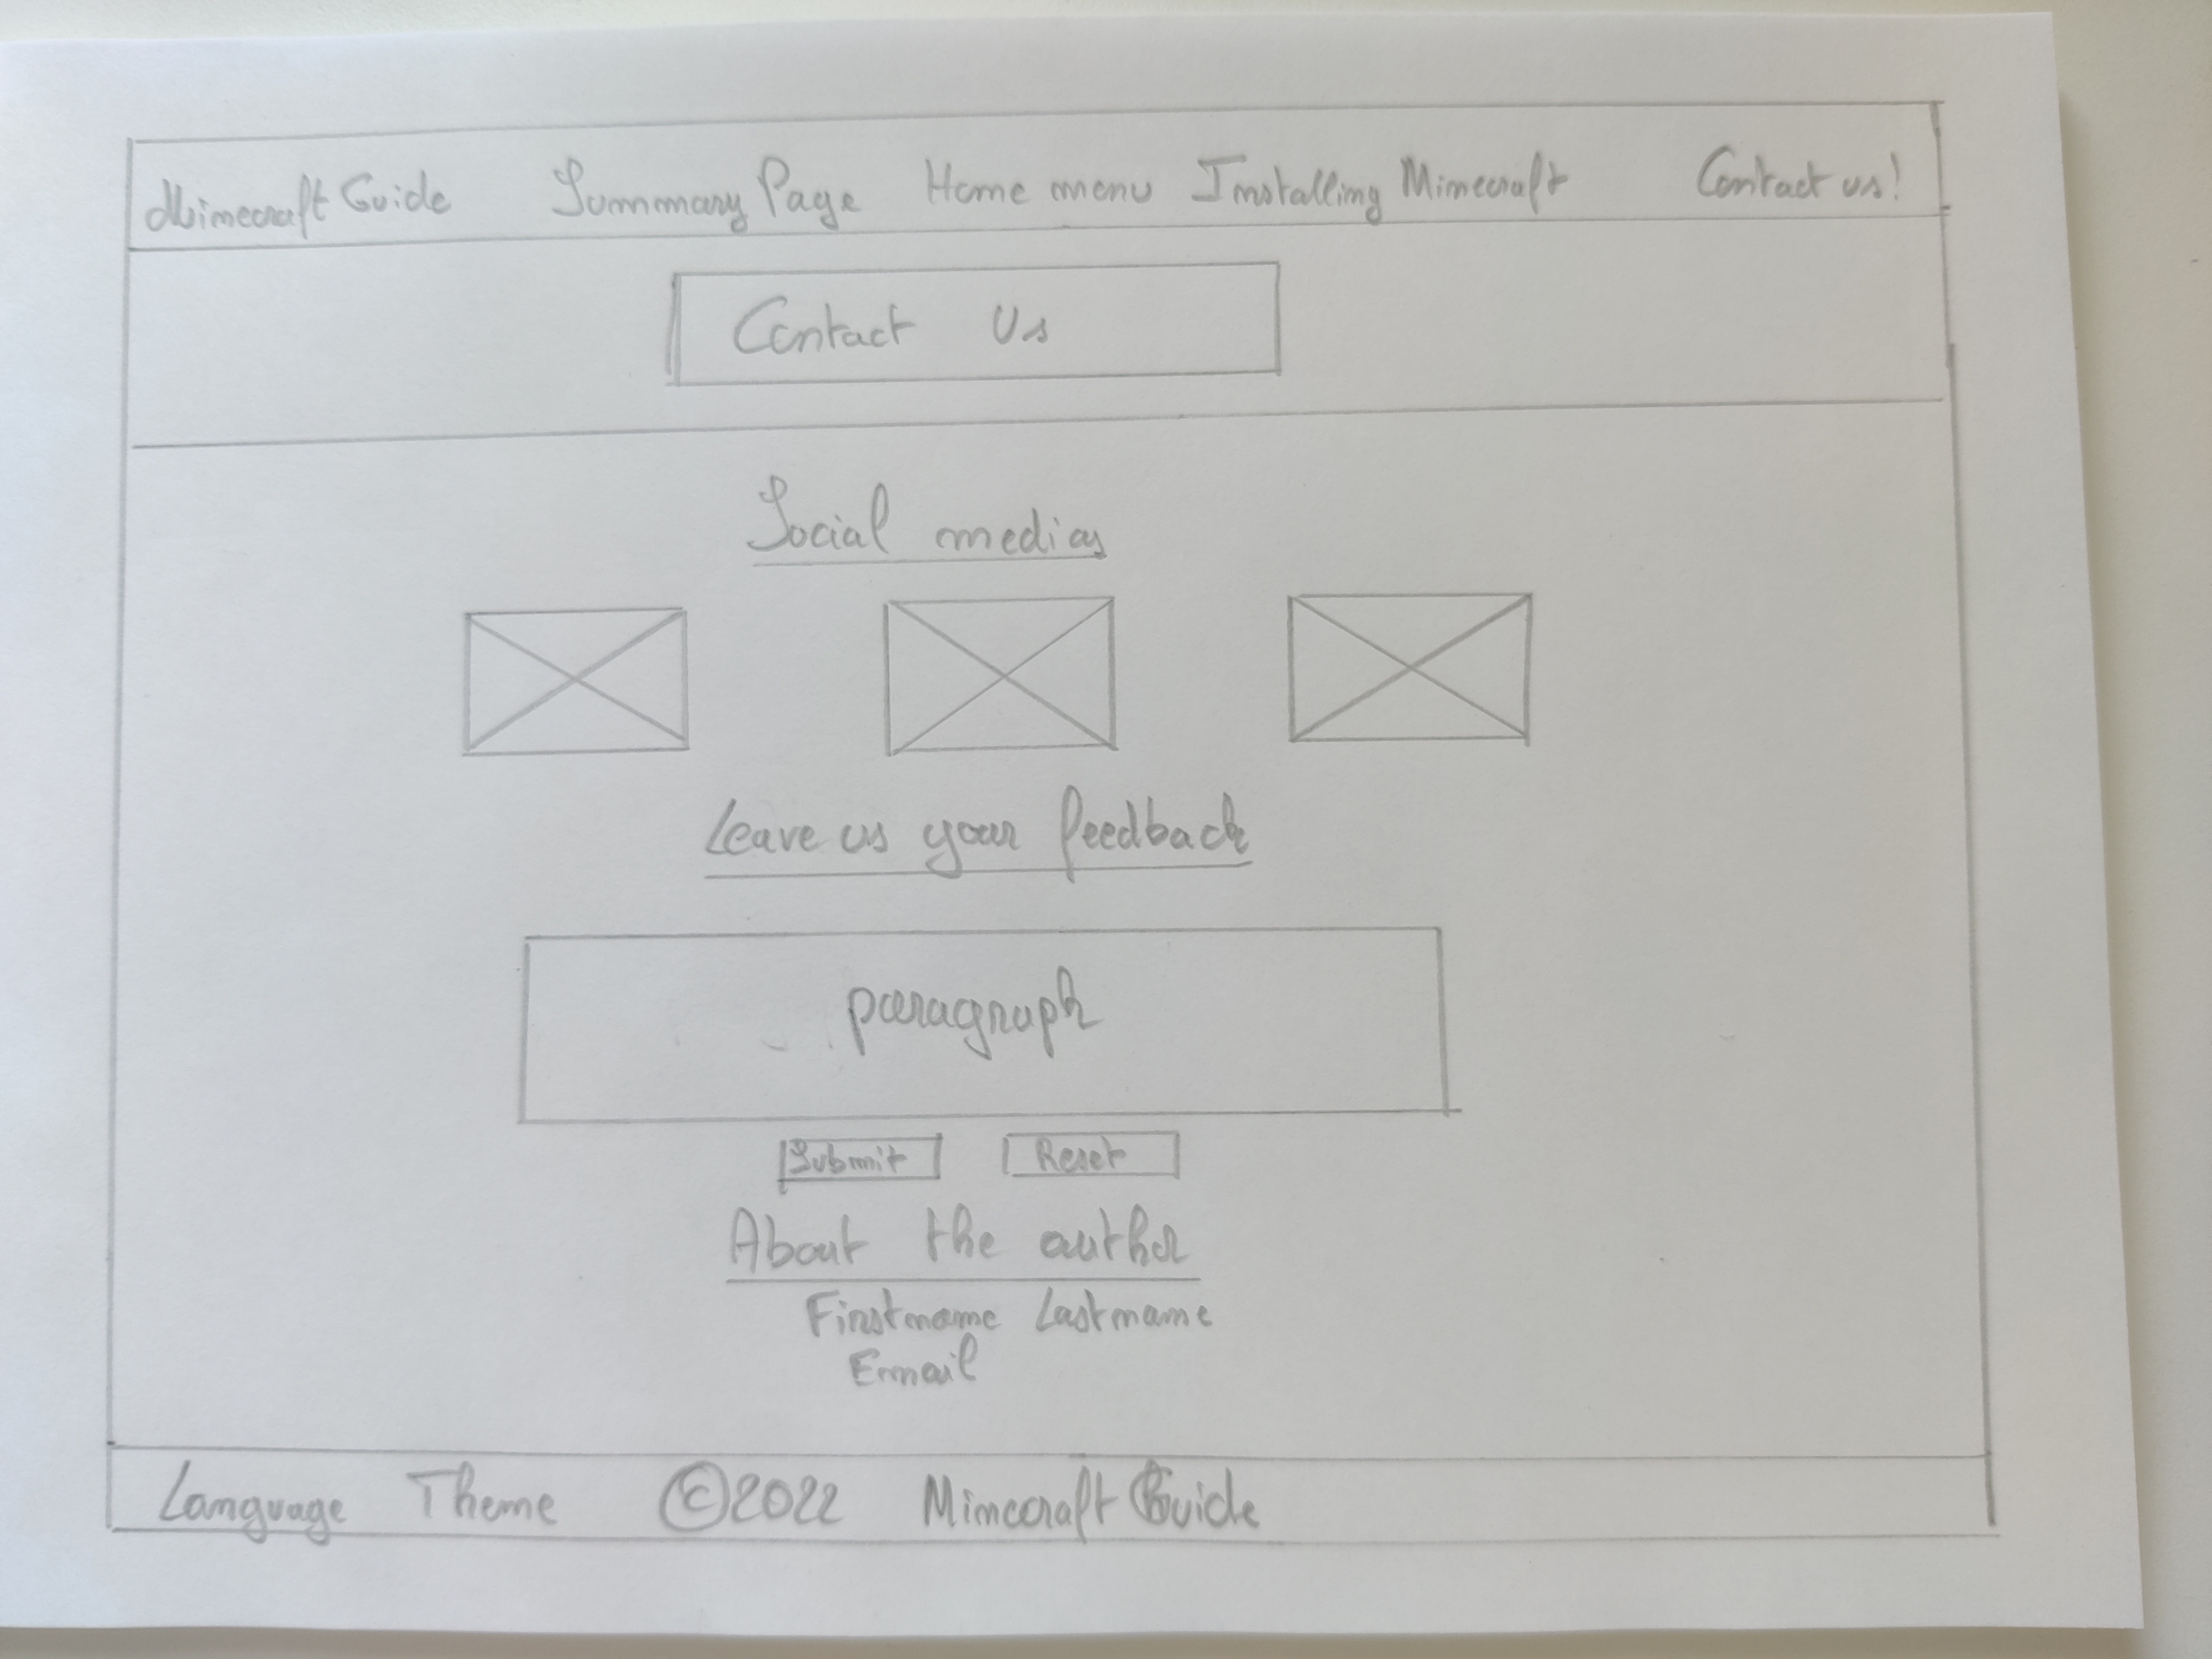 Minecraft Guide Summary Page Home menu Installing Minecraft Contact us!
Contact Us
Social medias
Leave us your feedback
paragraph
Submit Reset
About the author
Firstname Lastname
Email
Language Theme ©2022 Minecraft Guide